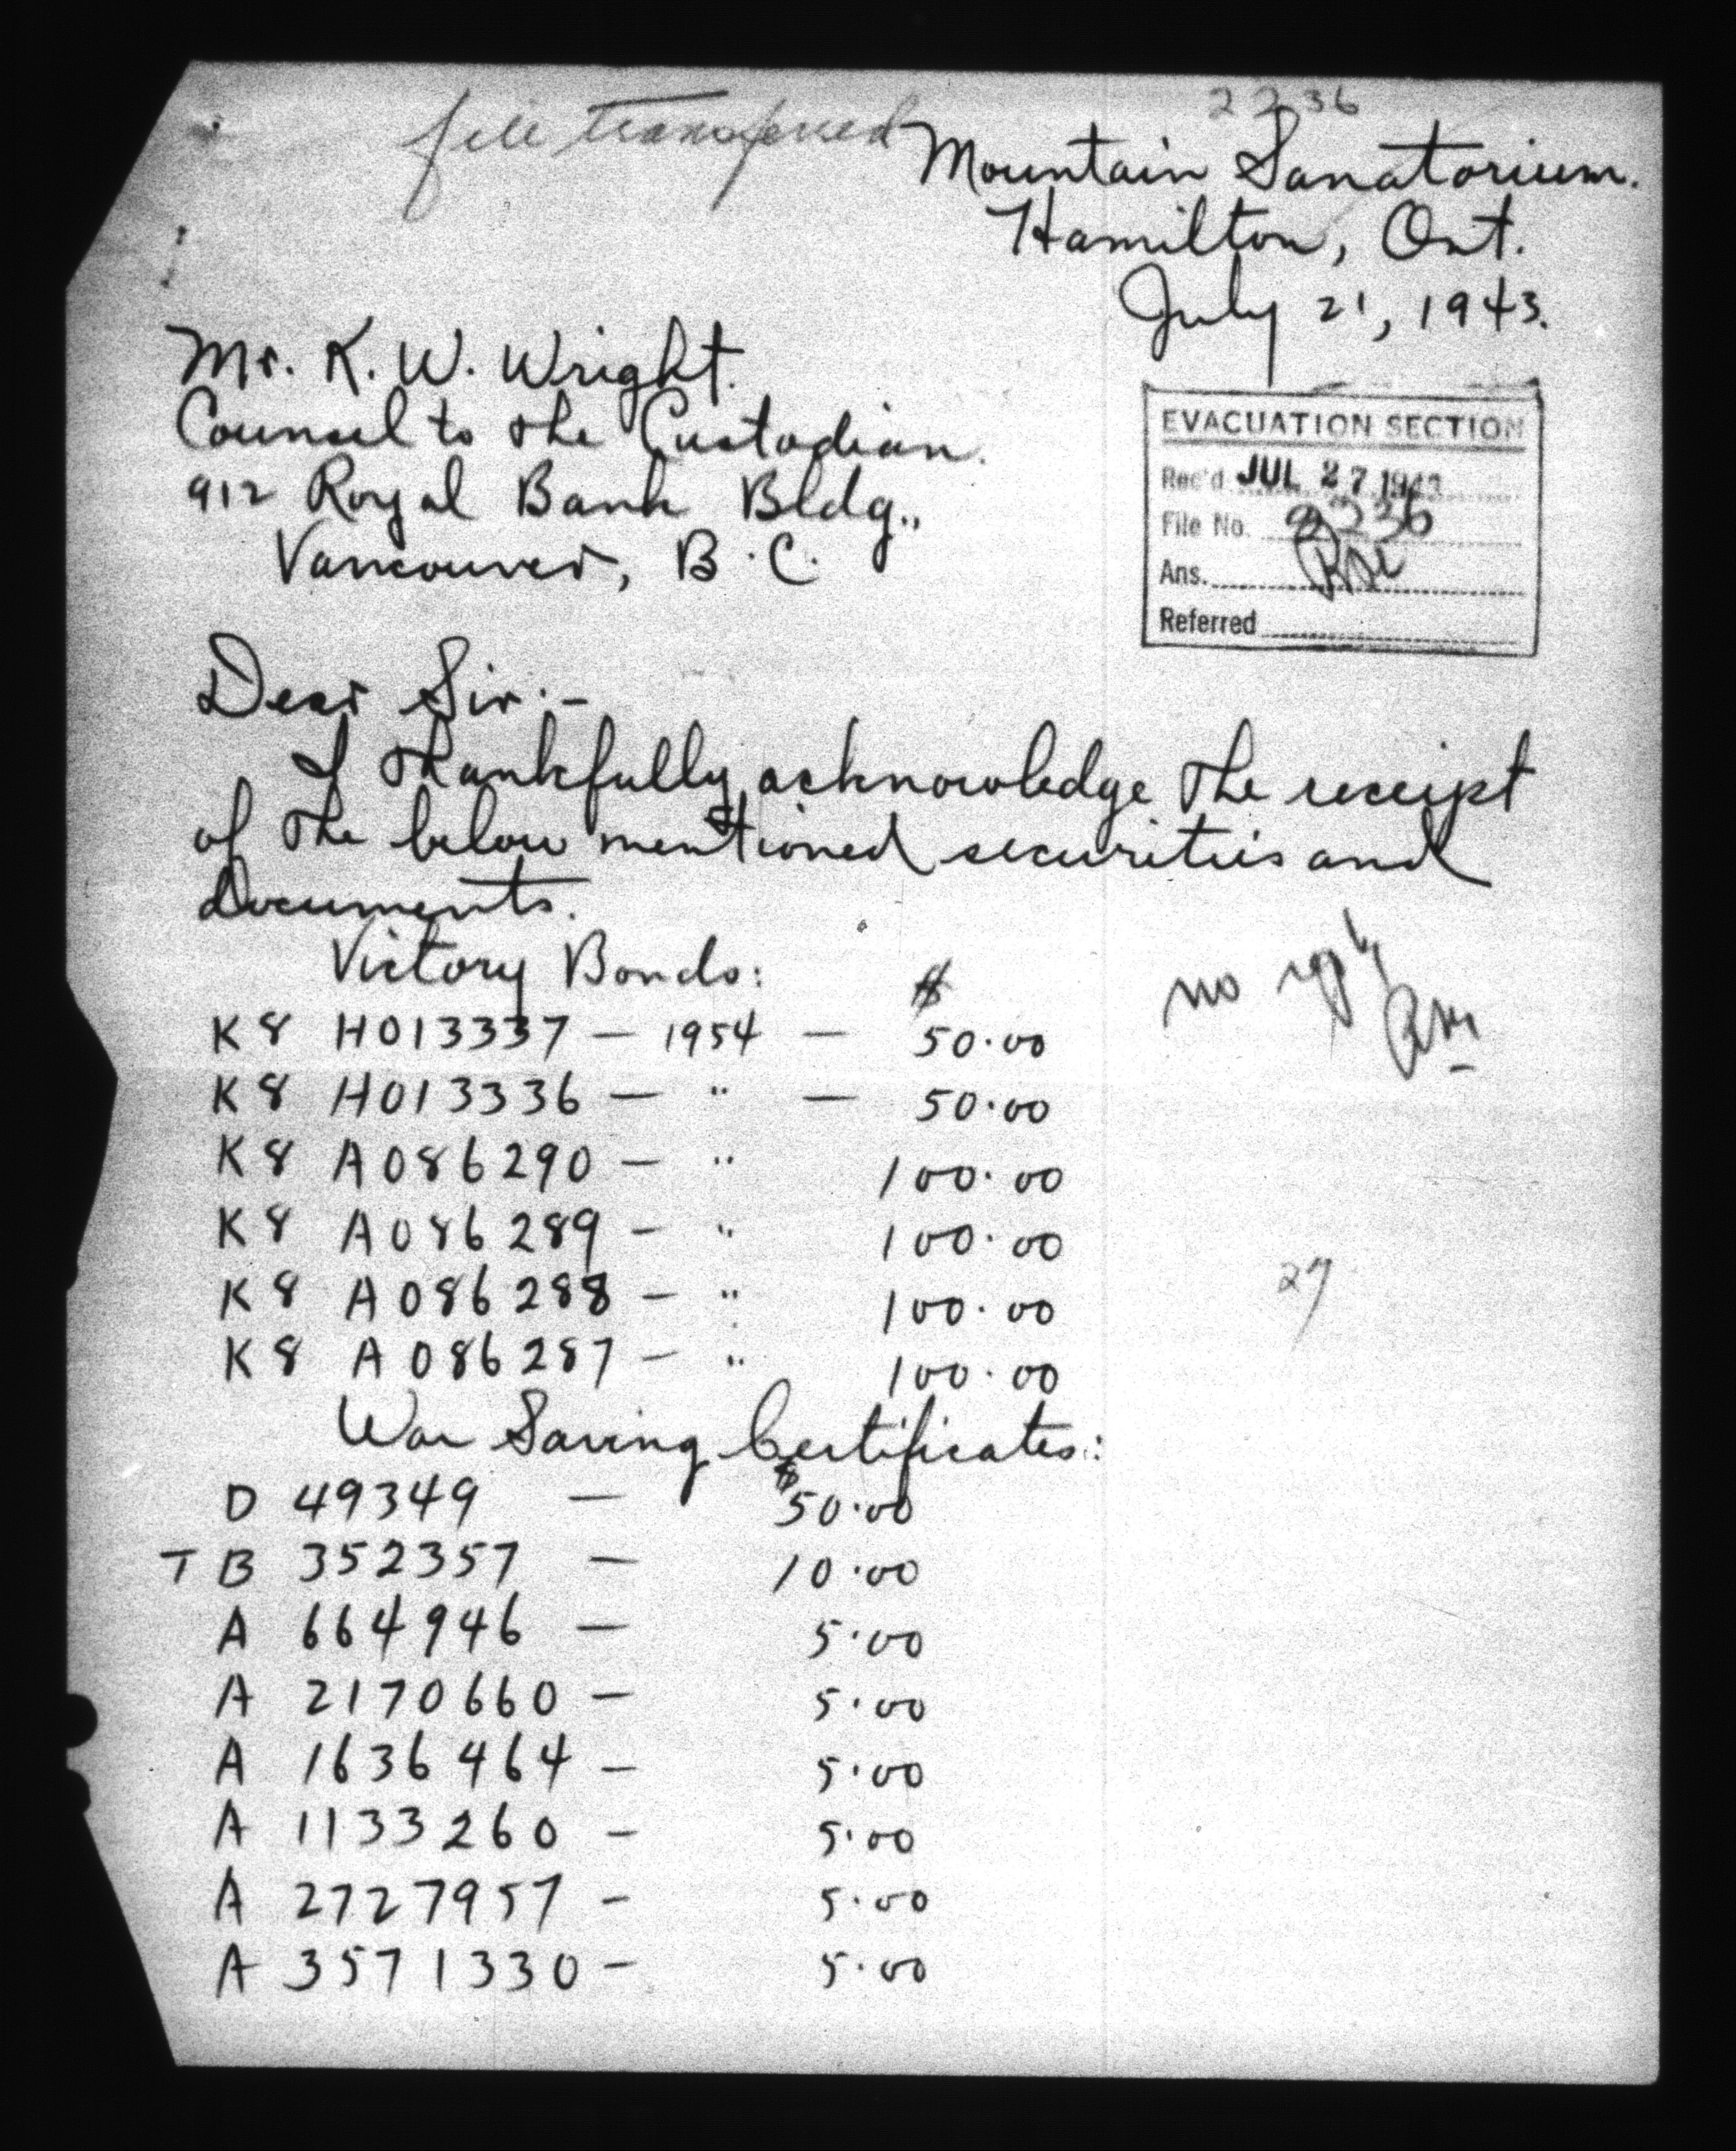 file transferred
2236
Mountain Sanatorium.
Hamilton, Ont.
July 21, 1943.
Mr. K. W. Wright.
Counsel to the Custodian.
912 Royal Bank Bldg.,
Vancouver, B.C.
EVACUATION SECTION
Rec'd JUL 27 1943
File No. 2236
Ans.
Referred
Dear Sir:-
I thankfully acknowledge the receipt
of the below mentioned securities and
documents.
Victory Bonds: $
K8 H013337 — 1954 — 50.00
K8 H013336 — " — 50.00
K8 A086290 — " 100.00
K8 A086289 — " 100.00
K8 A086288 — " 100.00
K8 A086287 — " 100.00
no reply
27
War Saving Certificates:
D 49349 — $50.00
T B 352357 — 10.00
A 664946 — 5.00
A 2170660 — 5.00
A 1636464 — 5.00
A 1133260 — 5.00
A 2727957 — 5.00
A 3571330 — 5.00